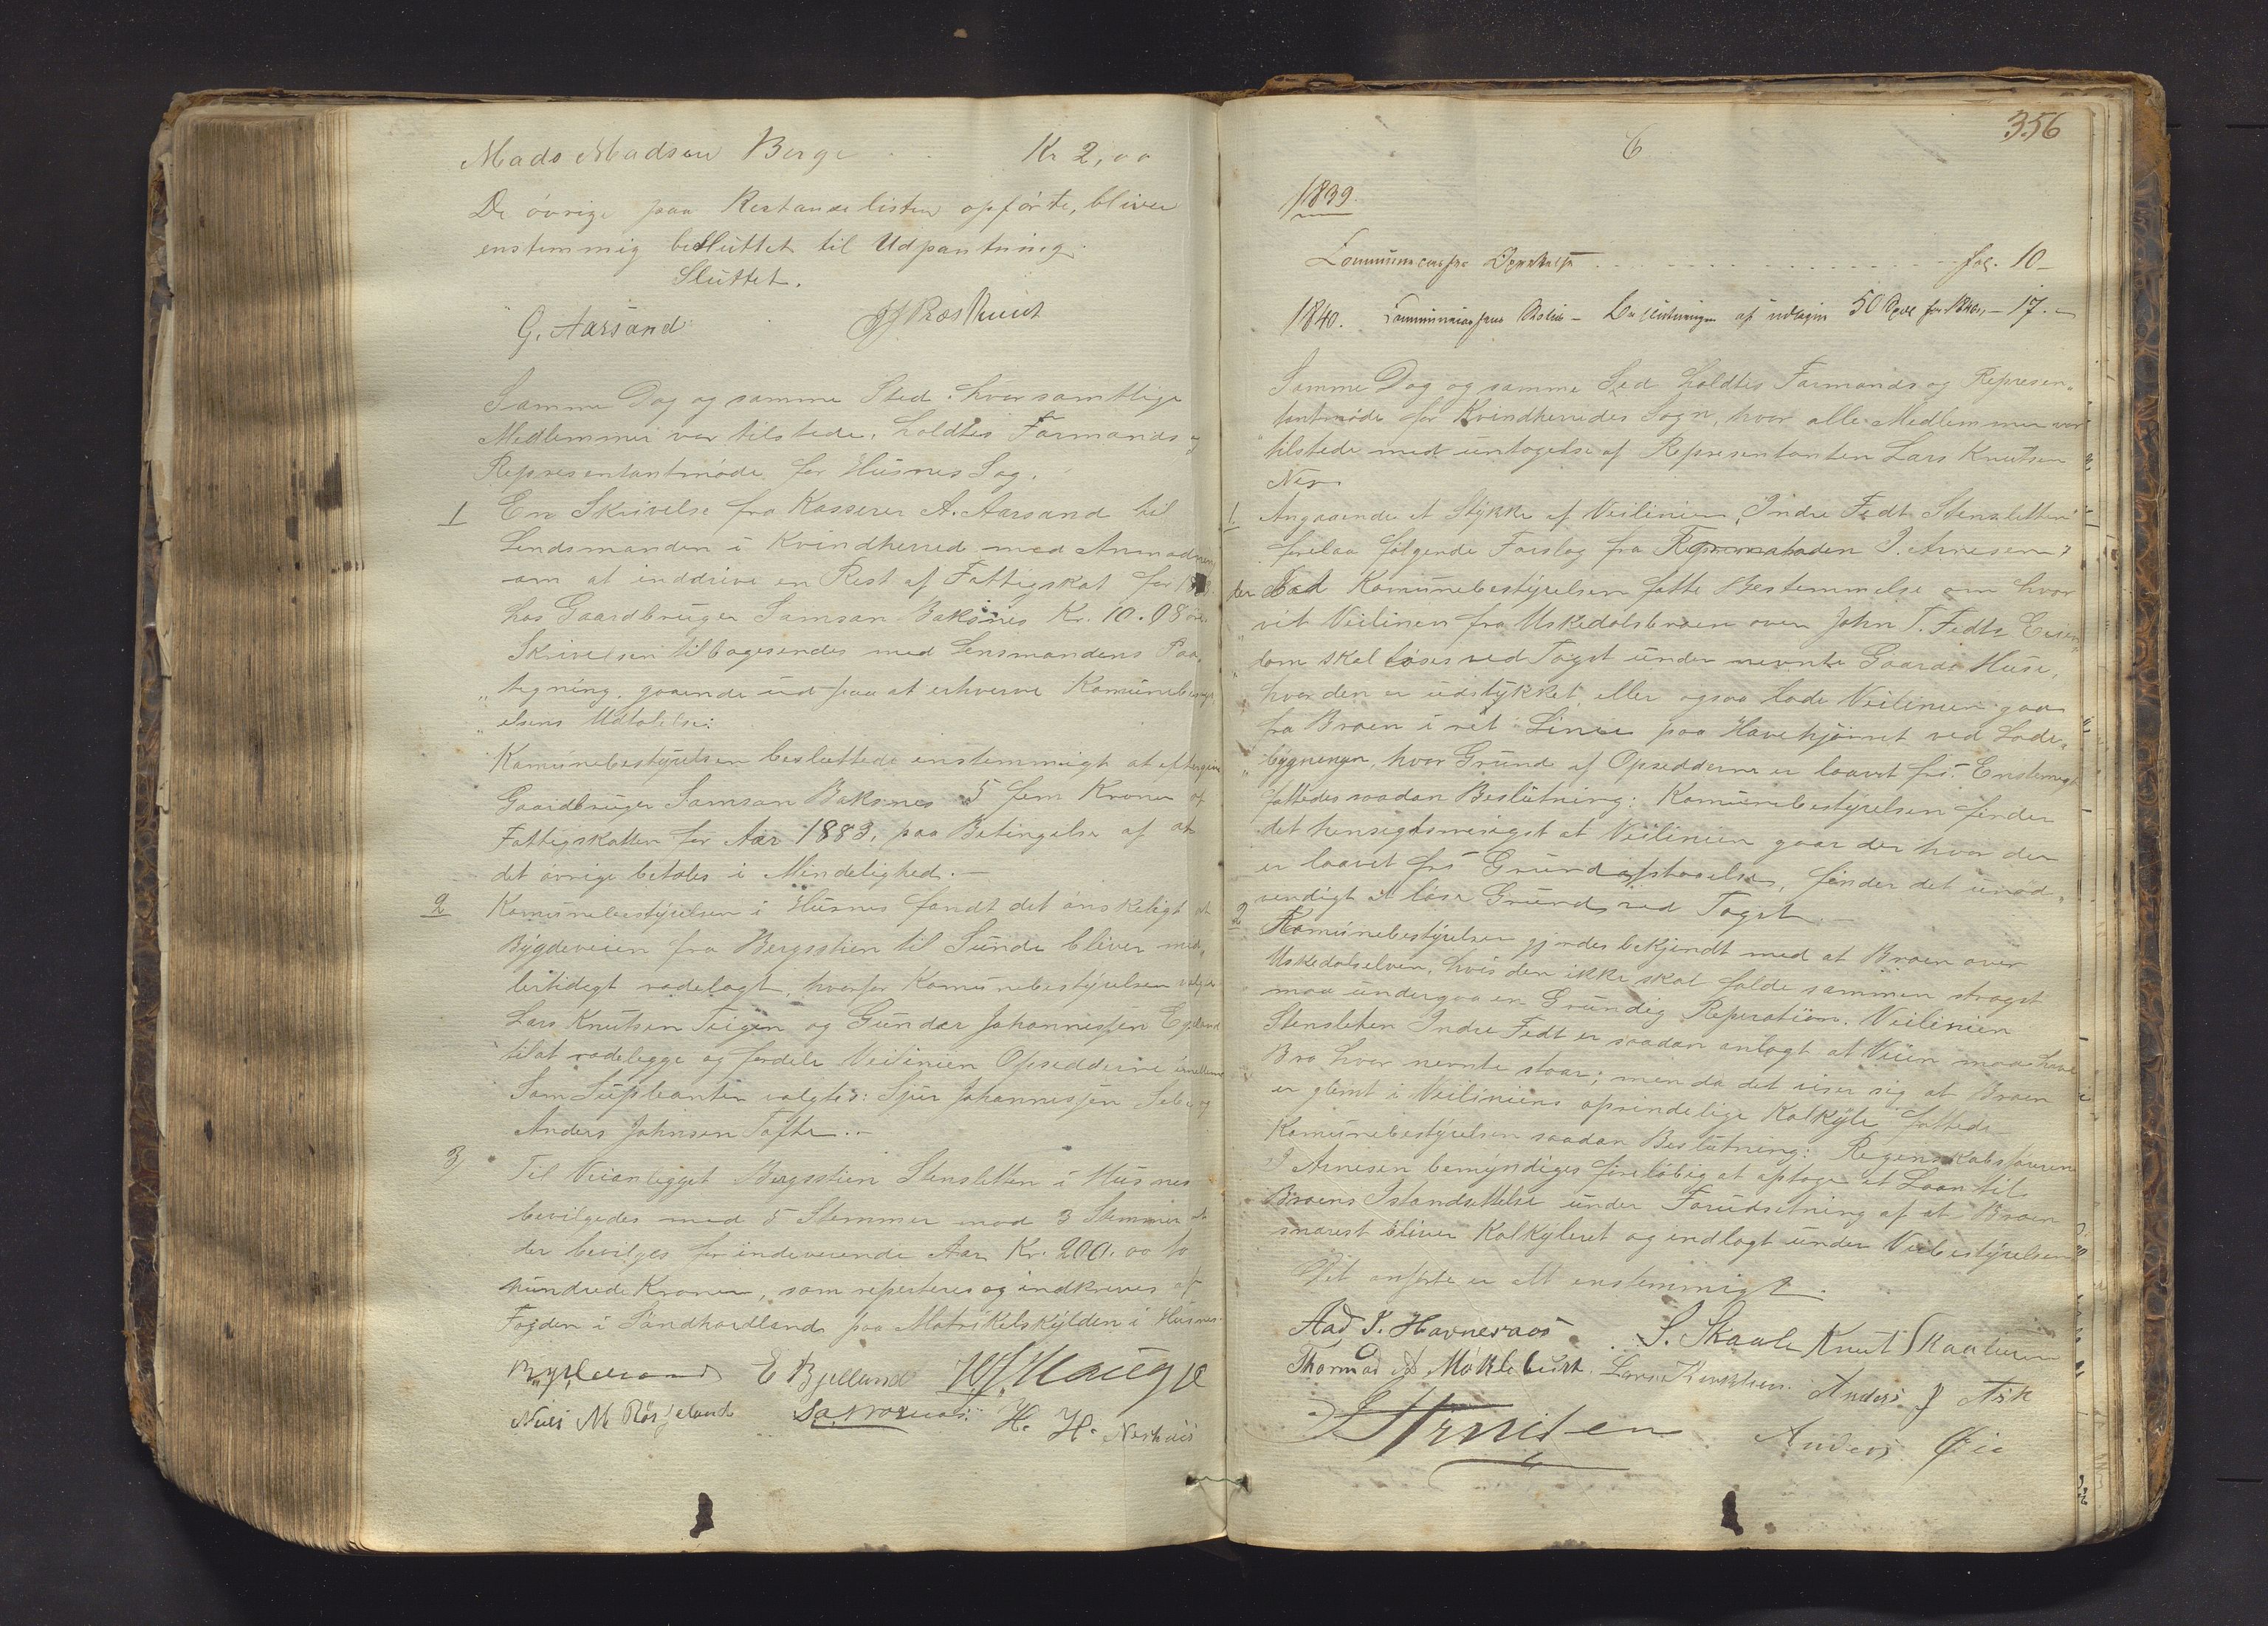 Mads Madsen Berge . . Kr 2,00
De øvrige paa Restanselisten opførte, bliver
enstemmig besluttet til Udpantning.
Sluttet.
G. Aarsand
Samme Dag og samme Sted, hvor samtlige
Medlemmer var tilstede, holdtes Formands og
Representantmøde for Husnes Sog.
1 En Skrivelse fra Kasserer A. Aarsand til
Lendsmanden i Kvindherred med Anmodning
om at inddrive en Rest af Fattigskat for
hos Gaardbruger Samson Baksnes Kr. 10.08 øre
Skrivelsen tilbagesendes med Lensmandens Paa„
„tegning, gaaende ud paa at erhverve Komunebestyr
„elsens Udtalelse:
Komunebestyrelsen besluttede enstemmigt at eftergive
Gaardbruger Samson Baksnes 5 fem Kroner af
Fattigskatten for Aar 1883, paa Betingelse af at
det øvrige betales i Mindelighed.—
2 Komunebestyrelsen i Husnes fandt det ønskeligt at
Bygdeveien fra Bergsstien til Sunde bliver mid„
lertidigt rodelagt, hvorfor Komunebestyrelsen valgte
Lars Knutsen Teigen og Gunder Johannessen
tilat rodelegge og fordele Veilinien Opsedderne imellem
Som Supleanter valgtes: Sjur Johannessen og
Anders Johnsen Tofte.—
3) Til Veianlegget Bergsstien Stensletten i Husnes
bevilgedes med 5 Stemmer mod 3 Stemmer at
der bevilges for indeverende Aar Kr. 200.00 to
hundrede Kroner, som reparteres og indkreves af
Fogden i Søndhordland paa Matrikelskylden i Husnes.
E Bjelland Haugse
Niels M Røsseland H. H. Neshuis
356
6
1839.
Communecassens . . . fol. 10 –
1840. Communecassens – Beslutningen af udlagte 50 Spd for 1840, – 17. –
Samme Dag og samme Sted holdtes Formands og Represen„
tantmøde for Kvindherreds Sogn, hvor alle Medlemmer var
tilstede med untagelse af Representanten Lars Knutsen
Nes.
1. Angaaende et Stykke af Veilinien, „Indre Fedt Stensletten"
forelaa følgende Forslag fra J. Arnesen:
Komunebestyrelsen fatte Bestemmelse om hvor
vit Veilinien fra Uskedalsbroen over John T. Fedts Eien„
dom skal løses ved Taxst under nevnte Gaards Huse,
hvor den er udstykket, eller ogsaa lade Veilinien gaa
fra Broen i ret Linie paa Havehjørnet ved Lade„
bygningen, hvor Grund af Opsedderne er lovet fri. Enstemigt
fattedes saadan Beslutning: Komunebestyrelsen finder
det hensigtsmesigst at Veilinien gaar der hvor der
er lovet fri Grundafstaaelse, finder det unød„
vendigt at løse Grund ved Taxst.—
2 Komunebestyrelsen gjordes bekjendt med at Broen over
Uskedalselven, hvis den ikke skal falde sammen stragst
maa undergaa en Grundig Reperation. Veilinien
Stensleten Indre Fedt er saadan anlagt at Veien maa have
Bro hvor nevnte staar; men da det viser sig at Broen
er glemt i Veiliniens oprindelige Kalkyle fattede
Komunebestyrelsen saadan Beslutning: Regenskabsføreren
J Arnesen bemyndiges foreløbig at optage et Laan til
Broens Istandsettelse under Forudsetning af at Broen
snarest bliver Kalkyleret og indlagt under Veibestyrelsen
Det anførte er alt enstemmigt.
Aad J. Havneraas S. Skaale Knut Skaaluren
Thormod A Møklebust. Lars Anders J Ask
J Arnesen Anders Øie